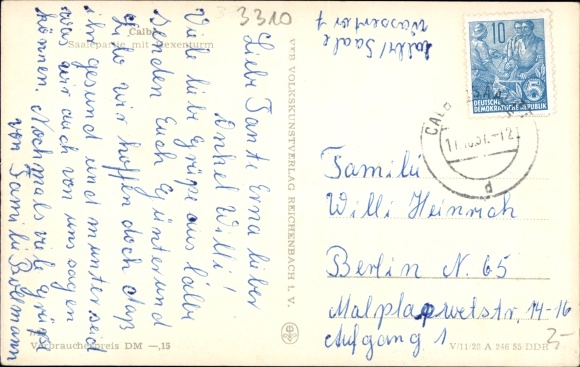 3310
Calbe
Saalepartie mit Hexenturm
Liebe Tante Erna lieber
Onkel Willi!
Viele liebe Grüße aus Calbe
senden Euch Günter und
wir hoffen doch daß
ihr gesund und munter seid
was wir auch von uns sagen
können. Nochmals viele Grüße
von Familie Bollmann
Verbraucherpreis DM —,15
VEB VOLKSKUNSTVERLAG REICHENBACH I. V.
Calbe/Saale
Wassertor 7
10
5
DEUTSCHE
DEMOKRATISCHE REPUBLIK
CALBE (SAALE)
d
Familie
Willi Heinrich
Berlin N. 65
Malplaquetstr. 14-16
Aufgang 1
V/11/28 A 246 55 DDR
3-